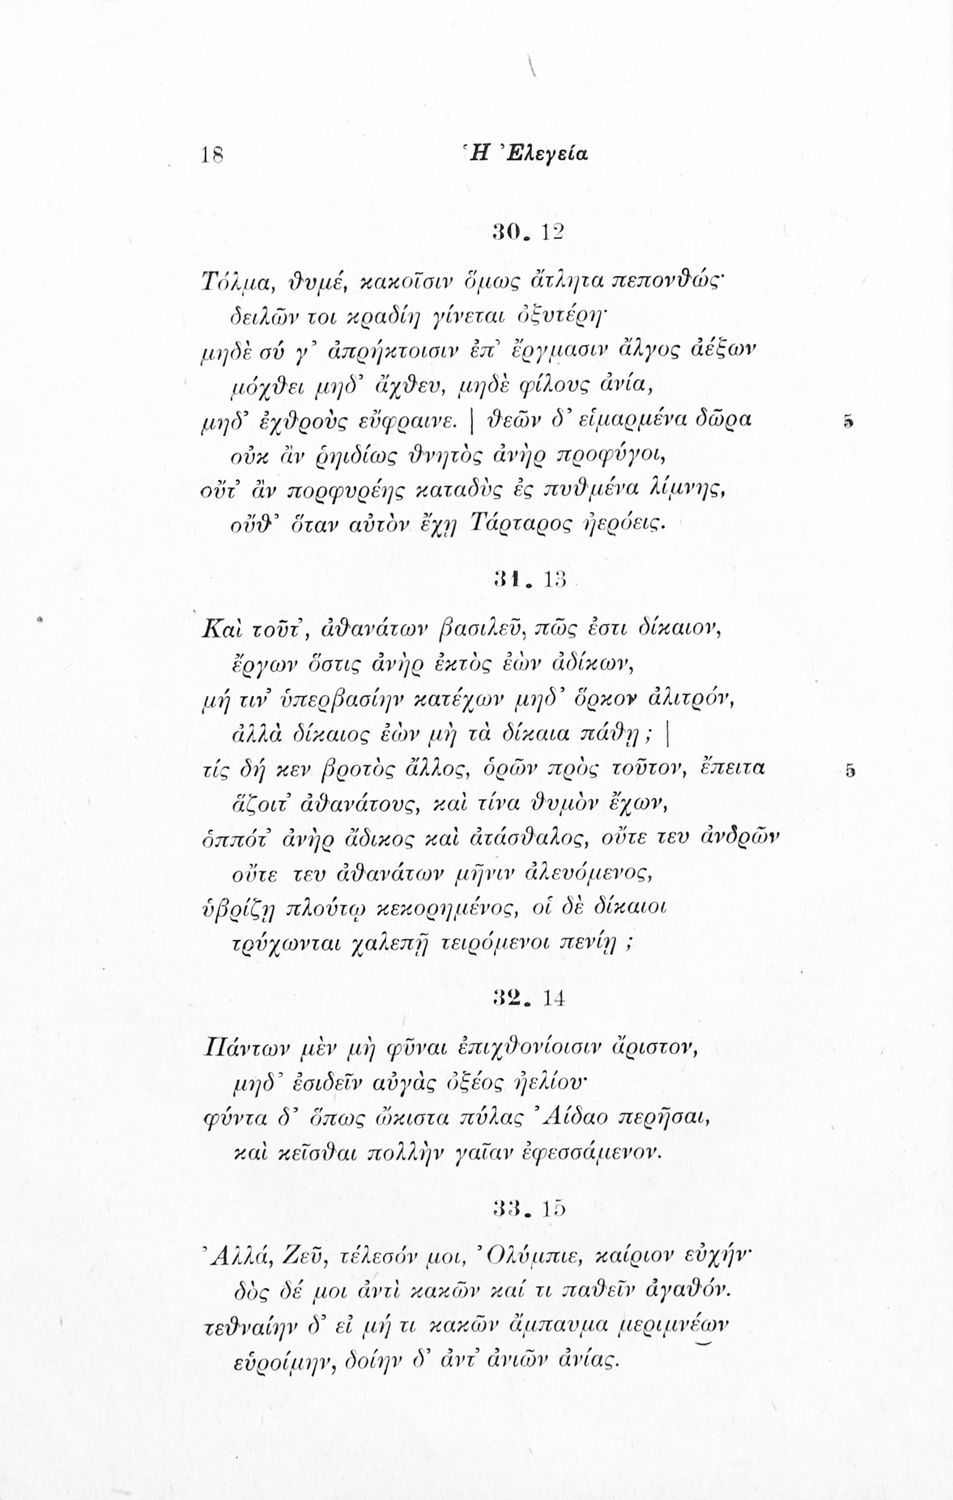 18 Ἡ Ἐλεγεία
30. 12
Τόλμα, θυμέ, κακοῖσιν ὅμως ἄτλητα πεπονθώς·
δειλῶν τοι κραδίη γίνεται ὀξυτέρη·
μηδὲ σύ γ’ ἀπρήκτοισιν ἐπ’ ἔργμασιν ἄλγος ἀέξων
μόχθει μηδ’ ἄχθευ, μηδὲ φίλους ἀνία,
μηδ’ ἐχθροὺς εὔφραινε. | θεῶν δ’ εἱμαρμένα δῶρα 5
οὐκ ἂν ῥηιδίως θνητὸς ἀνὴρ προφύγοι,
οὔτ’ ἂν πορφυρέης καταδὺς ἐς πυθμένα λίμνης,
οὔθ’ ὅταν αὐτὸν ἔχῃ Τάρταρος ἠερόεις.
31. 13
Καὶ τοῦτ’, ἀθανάτων βασιλεῦ, πῶς ἐστι δίκαιον,
ἔργων ὅστις ἀνὴρ ἐκτὸς ἐὼν ἀδίκων,
μή τιν’ ὑπερβασίην κατέχων μηδ’ ὅρκον ἀλιτρόν,
ἀλλὰ δίκαιος ἐὼν μὴ τὰ δίκαια πάθῃ ; |
τίς δή κεν βροτὸς ἄλλος, ὁρῶν πρὸς τοῦτον, ἔπειτα 5
ἅζοιτ’ ἀθανάτους, καὶ τίνα θυμὸν ἔχων,
ὁππότ’ ἀνὴρ ἄδικος καὶ ἀτάσθαλος, οὔτε τευ ἀνδρῶν
οὔτε τευ ἀθανάτων μῆνιν ἀλευόμενος,
ὑβρίζῃ πλούτῳ κεκορημένος, οἱ δὲ δίκαιοι
τρύχωνται χαλεπῇ τειρόμενοι πενίῃ ;
32. 14
Πάντων μὲν μὴ φῦναι ἐπιχθονίοισιν ἄριστον,
μηδ’ ἐσιδεῖν αὐγὰς ὀξέος ἠελίου·
φύντα δ’ ὅπως ὤκιστα πύλας Ἀίδαο περῆσαι,
καὶ κεῖσθαι πολλὴν γαῖαν ἐφεσσάμενον.
33. 15
Ἀλλά, Ζεῦ, τέλεσόν μοι, Ὀλύμπιε, καίριον εὐχήν·
δὸς δέ μοι ἀντὶ κακῶν καί τι παθεῖν ἀγαθόν.
τεθναίην δ’ εἰ μή τι κακῶν ἄμπαυμα μεριμνέων
εὑροίμην, δοίην δ’ ἀντ’ ἀνιῶν ἀνίας.